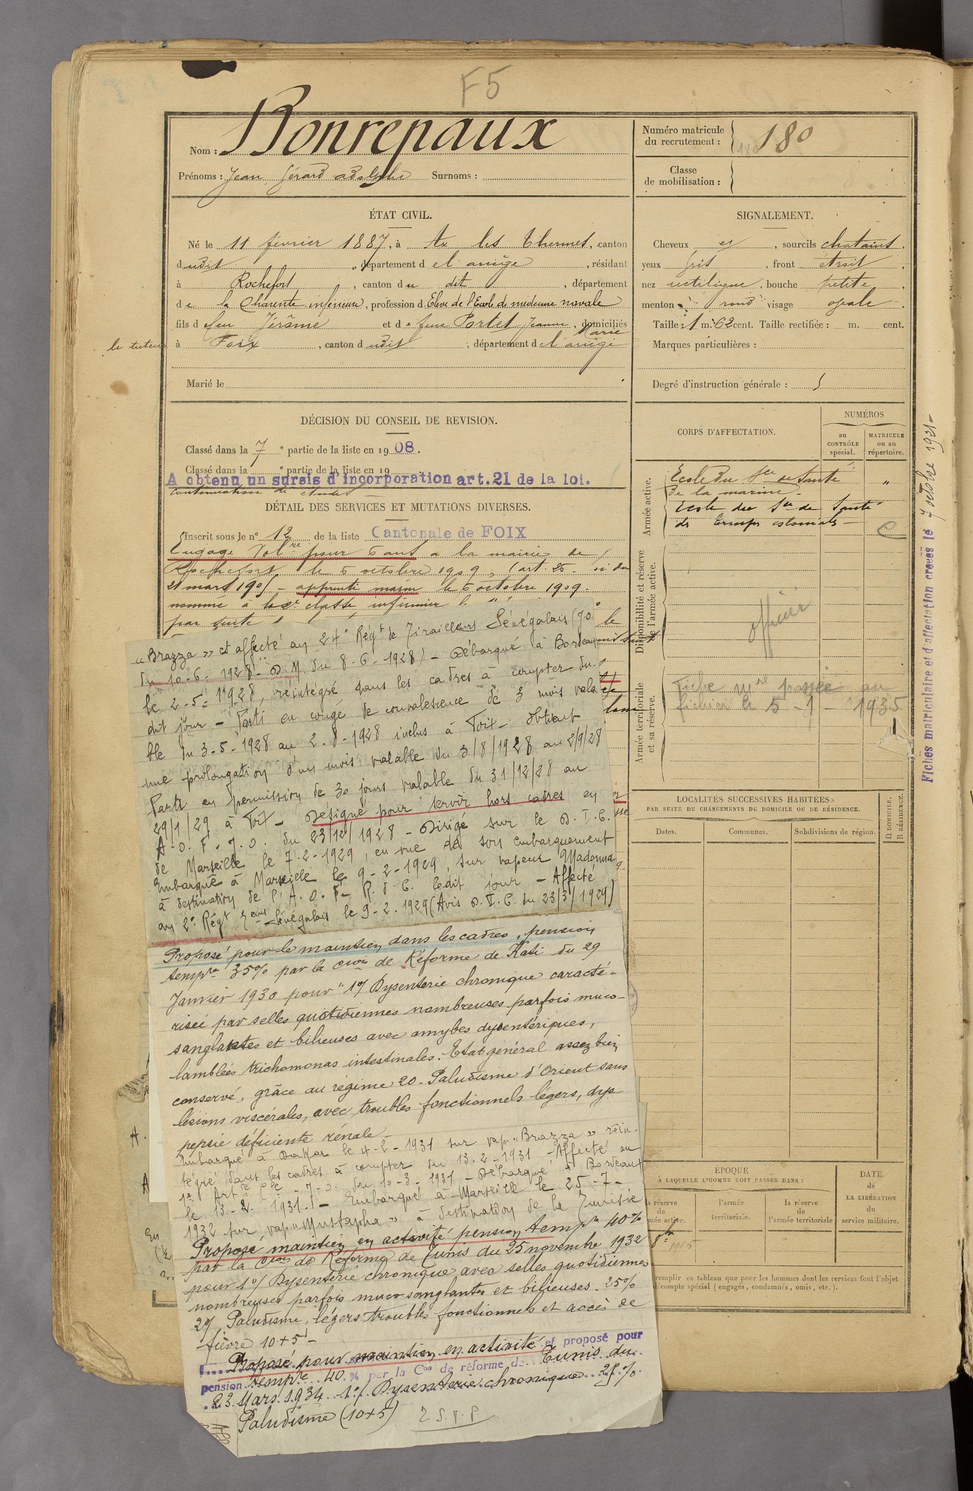 F5
Nom : Bonrepaux
Prénoms : Jean Gérard Adolphe Surnoms :
Numéro matricule du recrutement : 180
Classe de mobilisation :
ÉTAT CIVIL.
Né le 11 février 1887, à Ax les Thermes, canton
dudit, département de l'ariège, résidant
à Rochefort, canton du dit, département
de la Charente inférieure, profession d'Elève de l'Ecole de medecine navale
fils de feu Jérôme et de feue Portet Jeanne Marie, domiciliés
le tuteur à Foix, canton dudit, département de l'ariège
Marié le
SIGNALEMENT.
Cheveux et, sourcils chatains.
yeux gris, front étroit
nez rectiligne, bouche petite
menton rond visage ovale.
Taille : 1 m. 62 cent. Taille rectifiée : m. cent.
Marques particulières :
Degré d'instruction générale : 5
DÉCISION DU CONSEIL DE REVISION.
Classé dans la 7e partie de la liste en 1908.
Classé dans la e partie de la liste en 19
A obtenu un sursis d'incorporation art. 21 de la loi.
continuation de études
DÉTAIL DES SERVICES ET MUTATIONS DIVERSES.
Inscrit sous le n° 12 de la liste Cantonale de FOIX
Engagé Volre pour 5 ans à la mairie de
Rochefort le 5 octobre 1909, (art. 25
21 mars 1905 – apprenti marin le 5 octobre 1909.
nommé à la 2e classe infirmier
par suite
"Brazza" et affecté au 24e Régt de Tirailleurs Sénégalais (J.O.
du 10-6-1928 - D.M. du 8-6-1928) - Débarqué à Bordeaux
le 2-5-1928, réintégré dans les cadres à compter du
dit jour - Parti en congé de convalescence de 3 mois vala
ble du 3-5-1928 au 2-8-1928 inclus à Foix - obtient
une prolongation d'un mois valable du 3/8/1928 au 2/9/28
Parti en permission de 30 jours valable du 31/12/28 au
29/1/29 à Foix - Désigné pour servir hors cadres en
A.O.F. J.O. du 23/12/1928 - Dirigé sur le D.I.C.
de Marseille le 7-2-1929, en vue de son embarquement
Embarqué à Marseille le 9-2-1929, sur vapeur Madonna
à destination de l'A.O.F. - R.S.C. ledit jour - Affecté
au 2e Régt Tirailleurs Sénégalais le 9-2-1929 (Avis D.I.C. du 23/3/1929)
Proposé pour le maintien dans les cadres, pension
tempre 35% par la Cion de Réforme de Kati du 29
Janvier 1930 pour "1°/ Dysenterie chronique caracté-
risée par selles quotidiennes nombreuses parfois muco-
sanglantes et bilieuses avec amybes dysentériques,
lamblées trichomonas intestinales. Etat général assez bien
conservé, grâce au régime 20. Paludisme d'Orient sans
lésions viscérales, avec troubles fonctionnels légers, dys
pepsie déficiente rénale.
Embarqué à Dakar le 4-2-1931 sur vap. "Brazza" réin-
tégré dans les cadres à compter du 13-2-1931 - Affecté au
- J.O. du 10-3-1931 - Débarqué à Bordeaux
le 13-2-1931 - Embarqué à Marseille le 25-7-
1932 sur vap. "Mustapha" à destination de la Tunisie
Proposé maintien en activité pension tempre 40%
par la Cion de Réforme de Tunis du 25 novembre 1932
pour 1°/ Dysenterie chronique avec selles quotidiennes
nombreuses parfois muco sanglantes et bilieuses. 25%
2°/ Paludisme, légers troubles fonctionnels et accès de
fièvre 10+5"-
Proposé pour maintien en activité et proposé pour
pension tempre 40 % par la Cion de réforme de Tunis du
23 Mars 1934 1°/ Dysenterie chronique 25%
Paludisme (10+5)
T.S.V.P
CORPS D'AFFECTATION.
NUMÉROS
au CONTRÔLE spécial.
MATRICULE ou au répertoire.
Armée active.
Ecole du Sce de Santé
de la marine.
Ecole du Sce de Santé
des troupes coloniales
Disponibilité et réserve de l'armée active.
officier
Armée territoriale et sa réserve.
Fiche mle passée au
fichier le 5-1-1935
Fiches matriculaire et d'affectation créées le 7 octobre 1921-
LOCALITÉS SUCCESSIVES HABITÉES
PAR SUITE DE CHANGEMENTS DE DOMICILE OU DE RÉSIDENCE.
Dates.
Communes.
Subdivisions de région.
D. DOMICILE.
R. RÉSIDENCE.
ÉPOQUE
À LAQUELLE L'HOMME DOIT PASSER DANS :
la réserve de l'armée active.
l'armée territoriale.
la réserve de l'armée territoriale
DATE DE LA LIBÉRATION du service militaire.
remplir ce tableau que pour les hommes dont les services font l'objet
compte spécial (engagés, condamnés, omis, etc.).